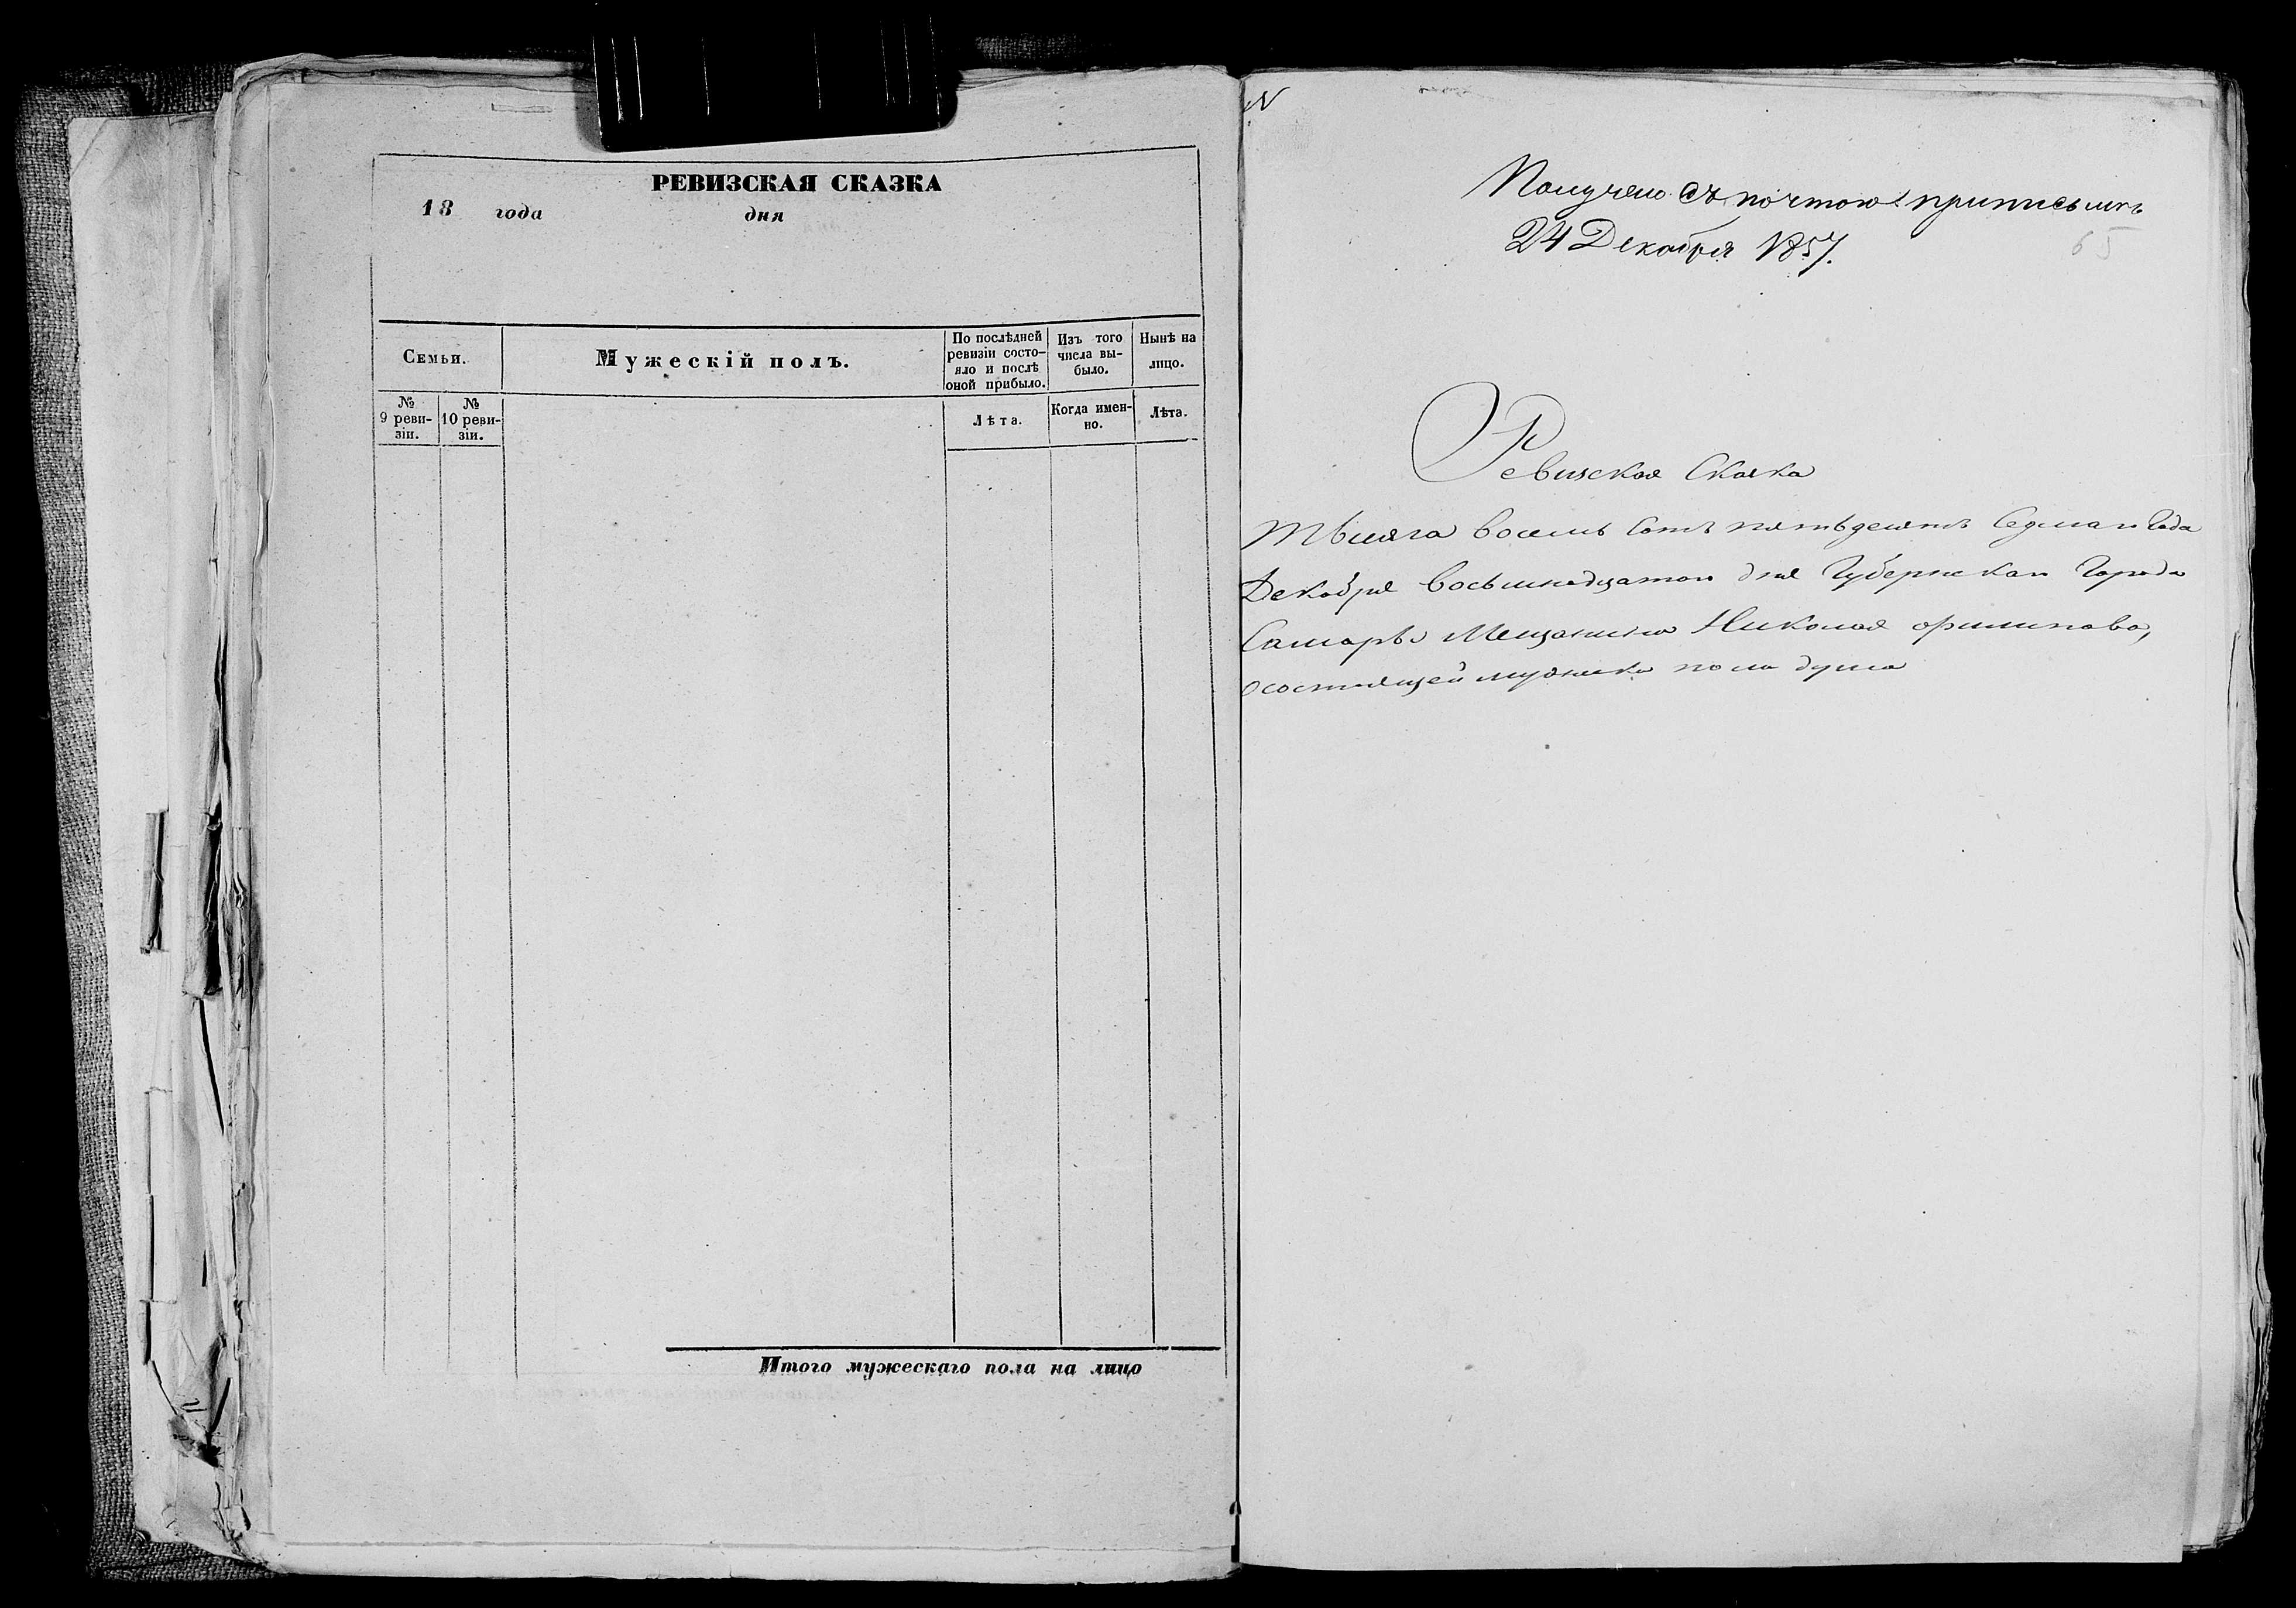 РЕВИЗСКАЯ СКАЗКА
18 года дня
Семьи.
Мужескій полъ.
По послѣдней
ревизіи состо-
яло и послѣ
оной прибыло.
Изъ того
числа вы-
было.
Нынѣ на
лицо.
№
9 реви-
зіи.
№
10 реви-
зіи.
Лѣта.
Когда имен-
но.
Лѣта.
Итого мужескаго пола на лицо
N
Получено съ почтою при письмѣ
24 Декабря 1857.
65
Ревизская Сказка
Тысяга восемь сотъ пятьдесятъ Седмаго Года
Декабря восьмнадцатого дня Губернскаго Города
Самары Мещанина Николая Филипова,
о состоящей мужска пола душа